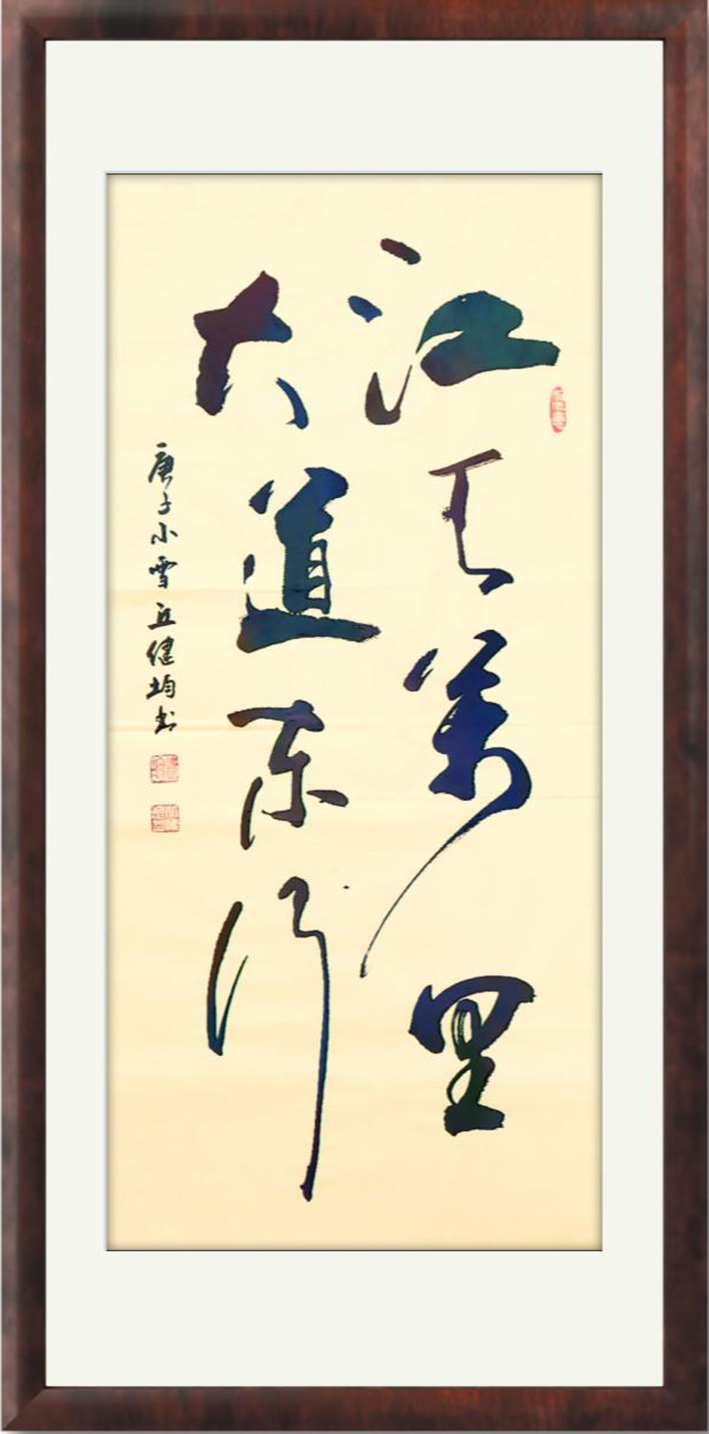 江天萬里
大道东行
庚子小雪丘健均书